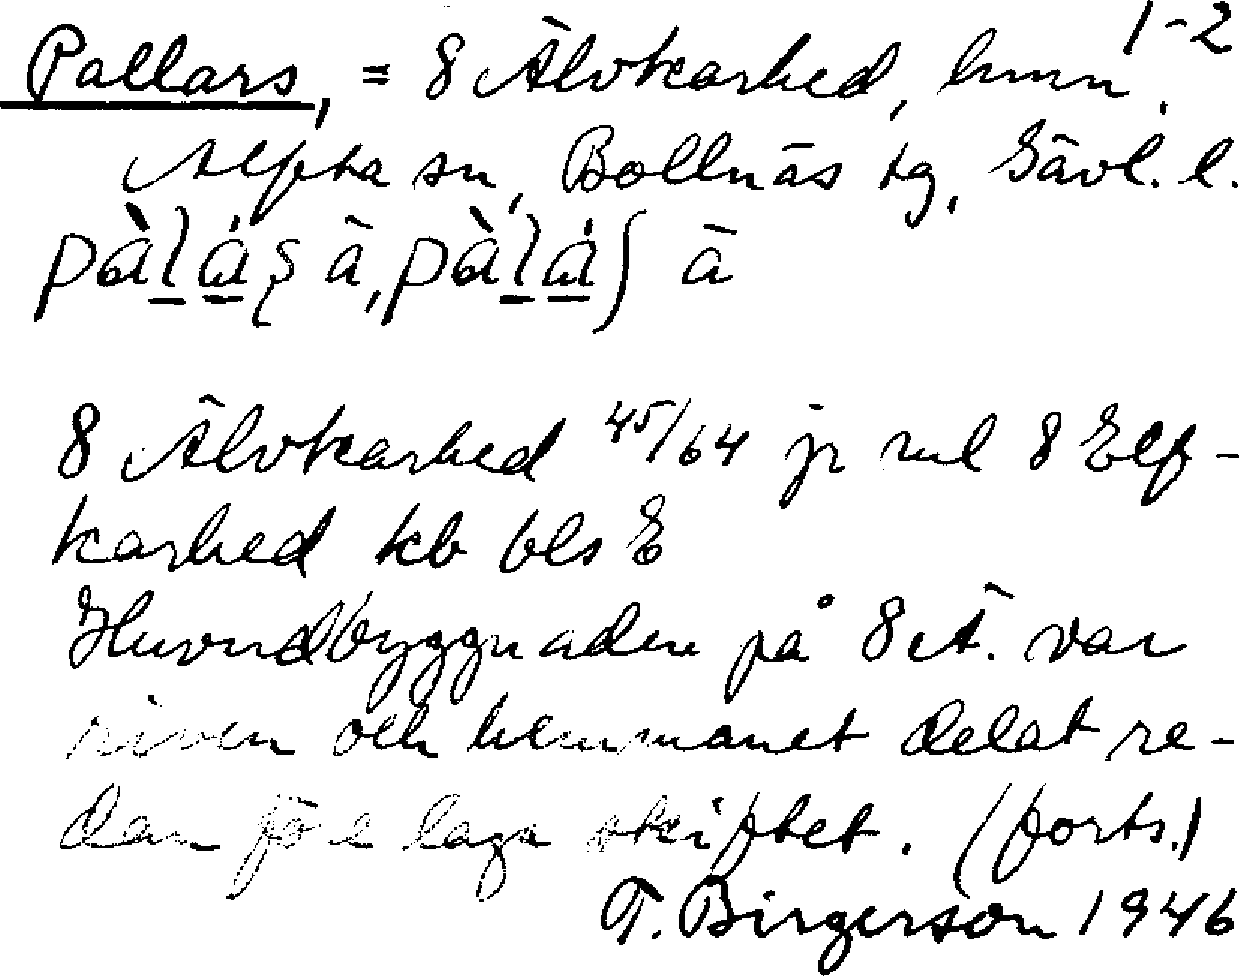 1-2
Pallars, = 8 Älvkarhed, hmn,
Alfta sn, Bollnäs tg, Gävl. l.
8 Älvkarhed 45/64 jr rul 8 Elf-
karhed kb bls E
Huvudbyggnaden på 8 Ä. var
riven och hemmanet delat re-
dan före laga skiftet. (forts.)
T. Birgerson 1946